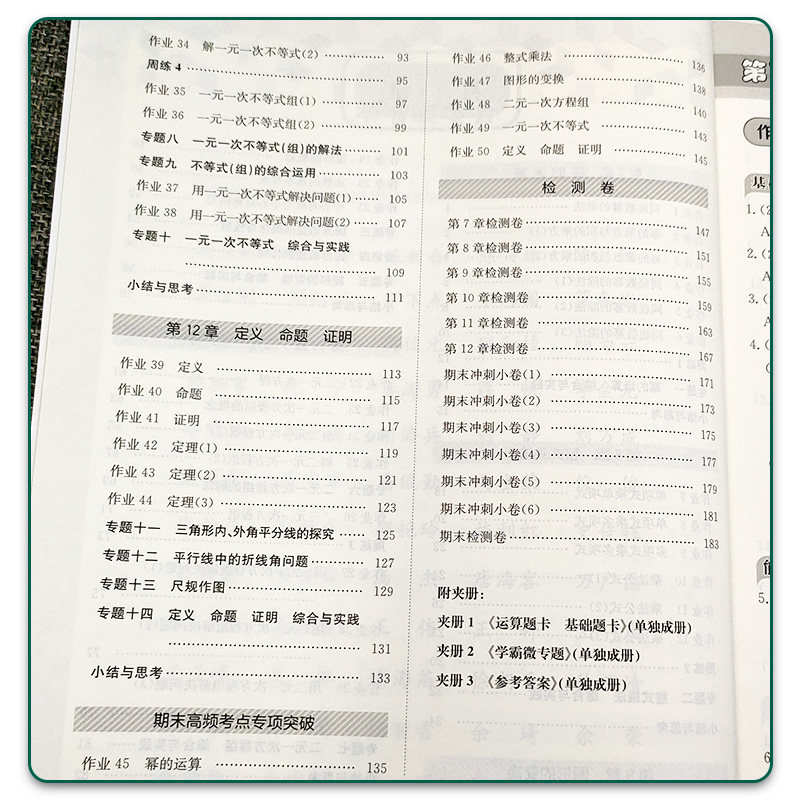 作业 34 解一元一次不等式(2) 93
周练 4 95
作业 35 一元一次不等式组(1) 97
作业 36 一元一次不等式组(2) 99
专题八 一元一次不等式(组)的解法 101
专题九 不等式(组)的综合运用 103
作业 37 用一元一次不等式解决问题(1) 105
作业 38 用一元一次不等式解决问题(2) 107
专题十 一元一次不等式 综合与实践
109
小结与思考 111
第 12 章 定义 命题 证明
作业 39 定义 113
作业 40 命题 115
作业 41 证明 117
作业 42 定理(1) 119
作业 43 定理(2) 121
作业 44 定理(3) 123
专题十一 三角形内、外角平分线的探究 125
专题十二 平行线中的折线角问题 127
专题十三 尺规作图 129
专题十四 定义 命题 证明 综合与实践
131
小结与思考 133
期末高频考点专项突破
作业 45 幂的运算 135
作业 46 整式乘法 136
作业 47 图形的变换 138
作业 48 二元一次方程组 140
作业 49 一元一次不等式 143
作业 50 定义 命题 证明 145
检 测 卷
第 7 章检测卷 147
第 8 章检测卷 151
第 9 章检测卷 155
第 10 章检测卷 159
第 11 章检测卷 163
第 12 章检测卷 167
期末冲刺小卷(1) 171
期末冲刺小卷(2) 173
期末冲刺小卷(3) 175
期末冲刺小卷(4) 177
期末冲刺小卷(5) 179
期末冲刺小卷(6) 181
期末检测卷 183
附夹册:
夹册 1 《运算题卡 基础题卡》(单独成册)
夹册 2 《学霸微专题》(单独成册)
夹册 3 《参考答案》(单独成册)
第
作
基
1.(2
A
2.(2
A
3.(
A
4.(
5.
6